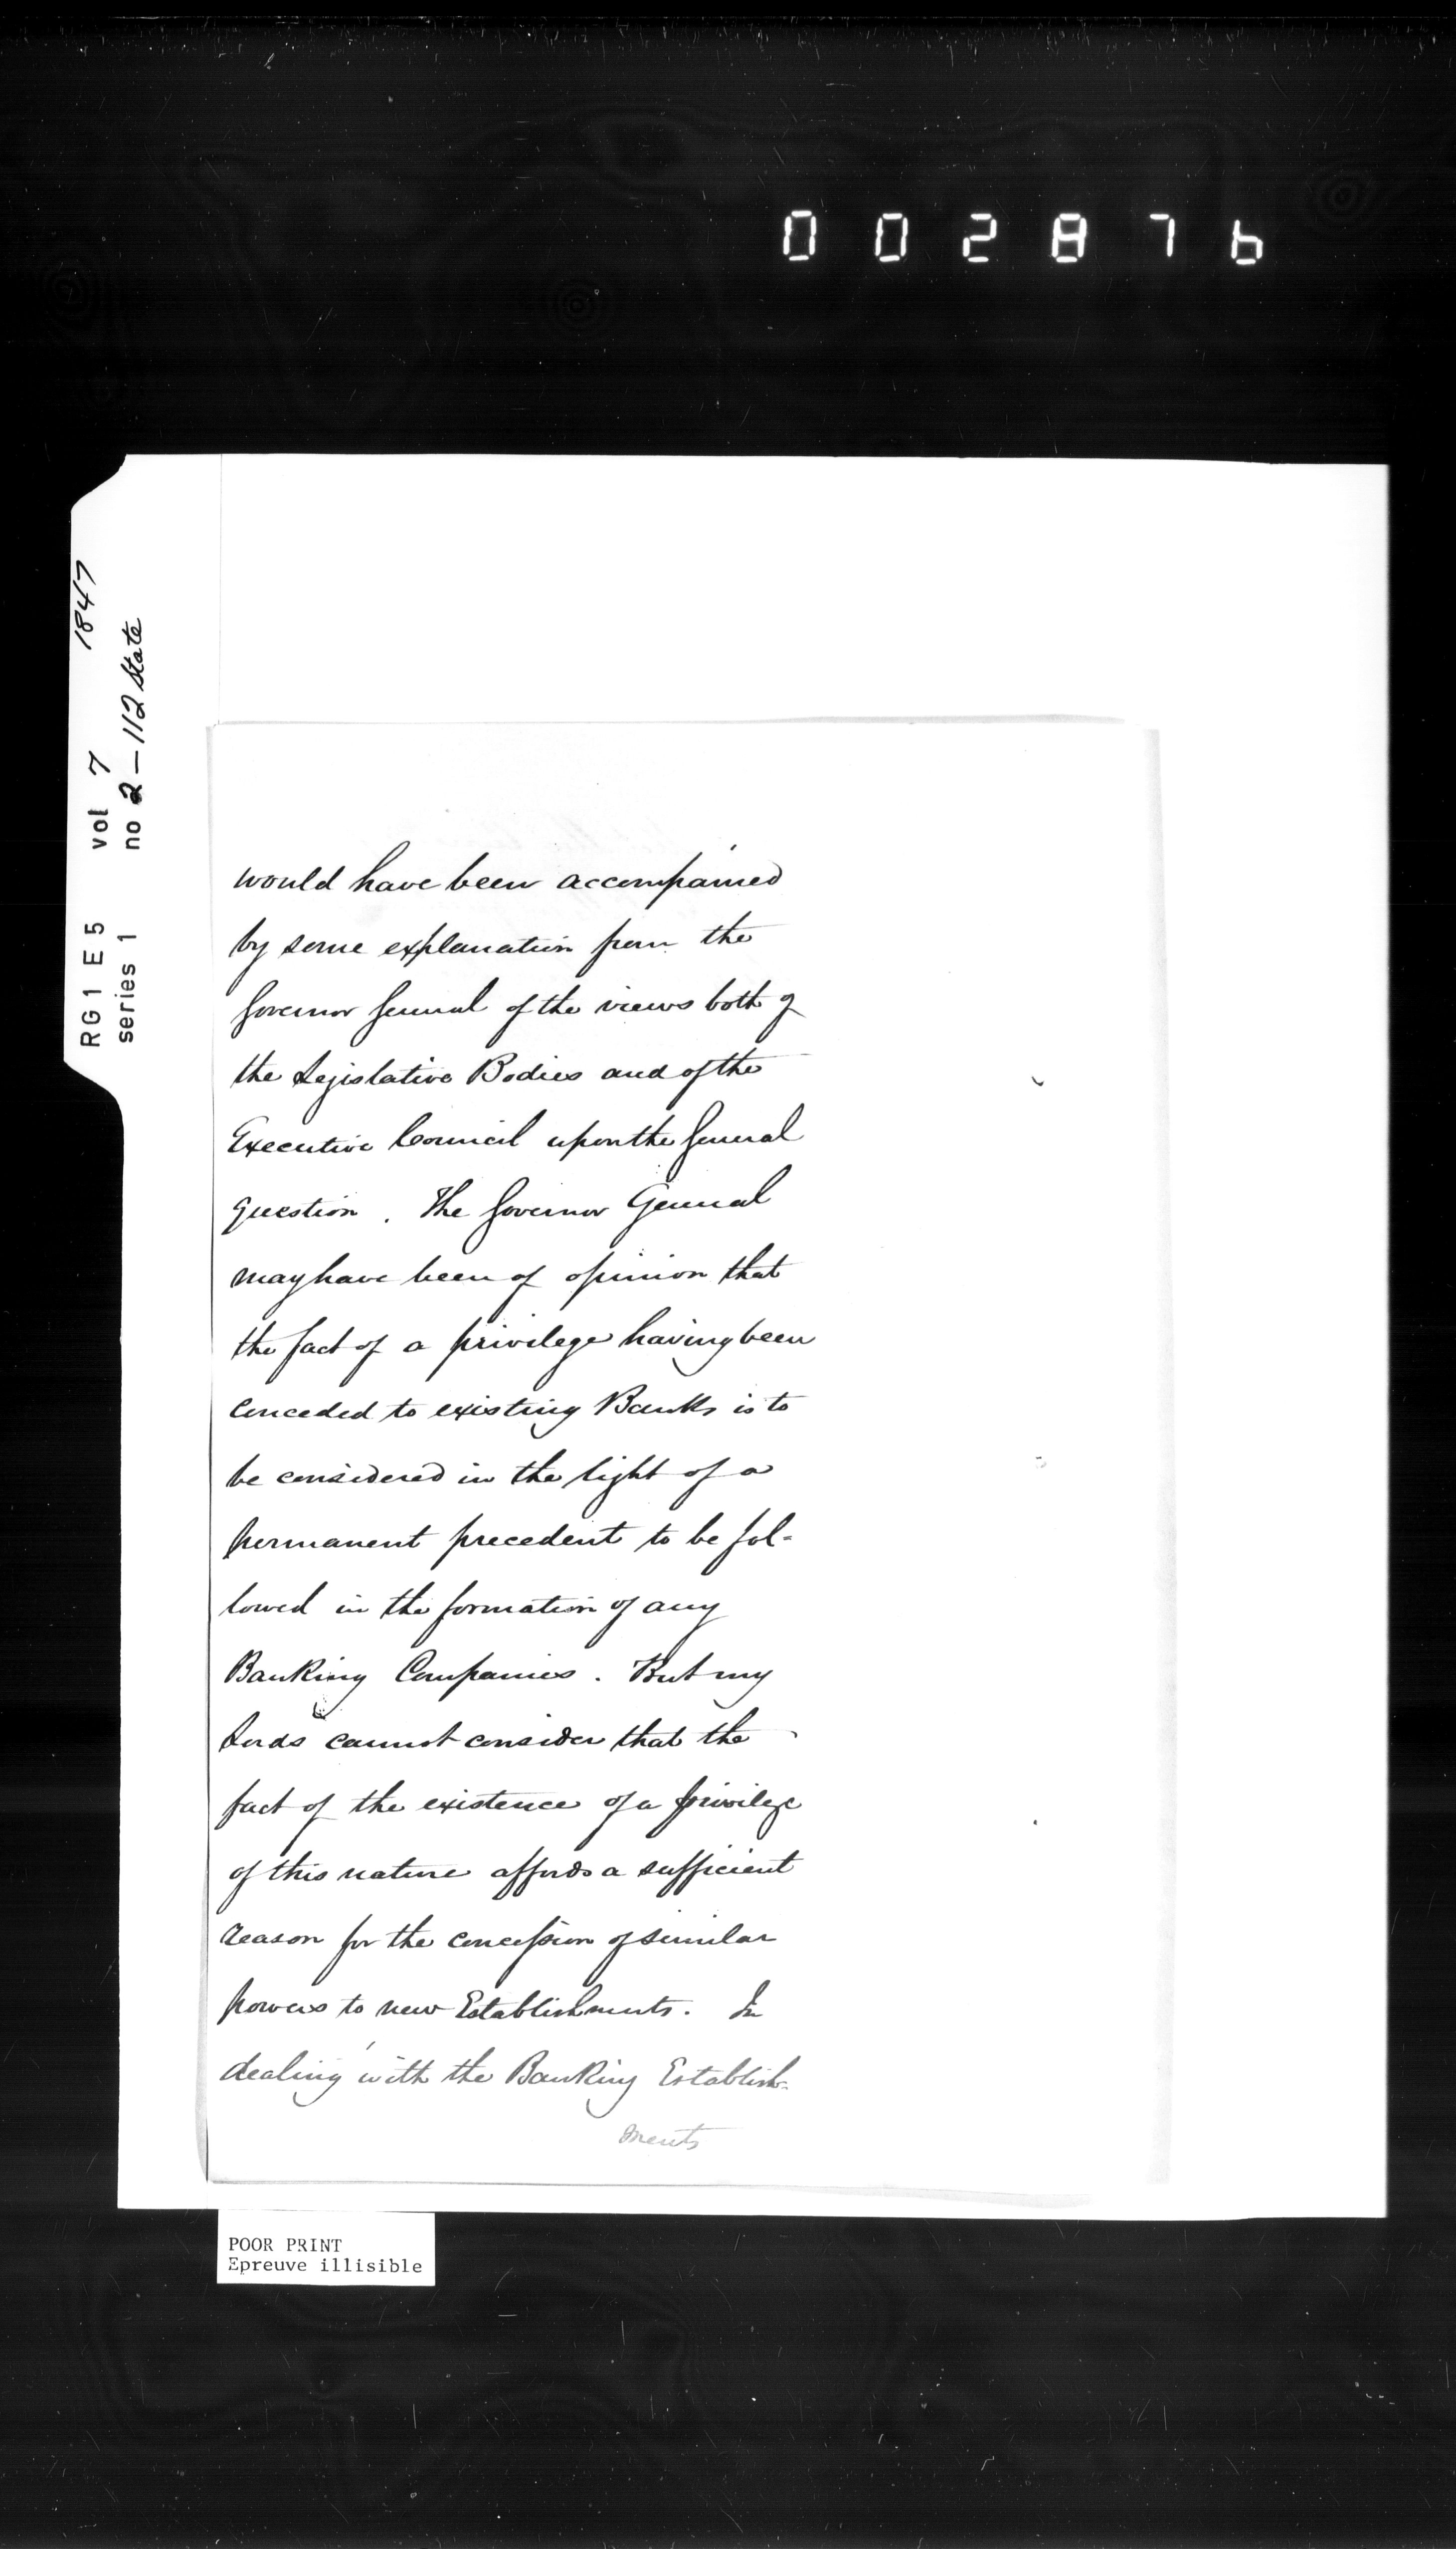 002876
RG1 E5 vol 7 1847
series 1 no 2-112 State
would have been accompanied
by some explanation from the
Governor General of the views both of
the Legislative Bodies and of the
Executive Council upon the General
question. The Governor General
may have been of opinion that
the fact of a privilege having been
conceded to existing Banks is to
be considered in the light of a
permanent precedent to be fol-
lowed in the formation of any
Banking Companies. But my
Lords cannot consider that the
fact of the existence of a privilege
of this nature affords a sufficient
reason for the concession of similar
powers to new Establishments. In
dealing with the Banking Establish-
ments
POOR PRINT
Epreuve illisible